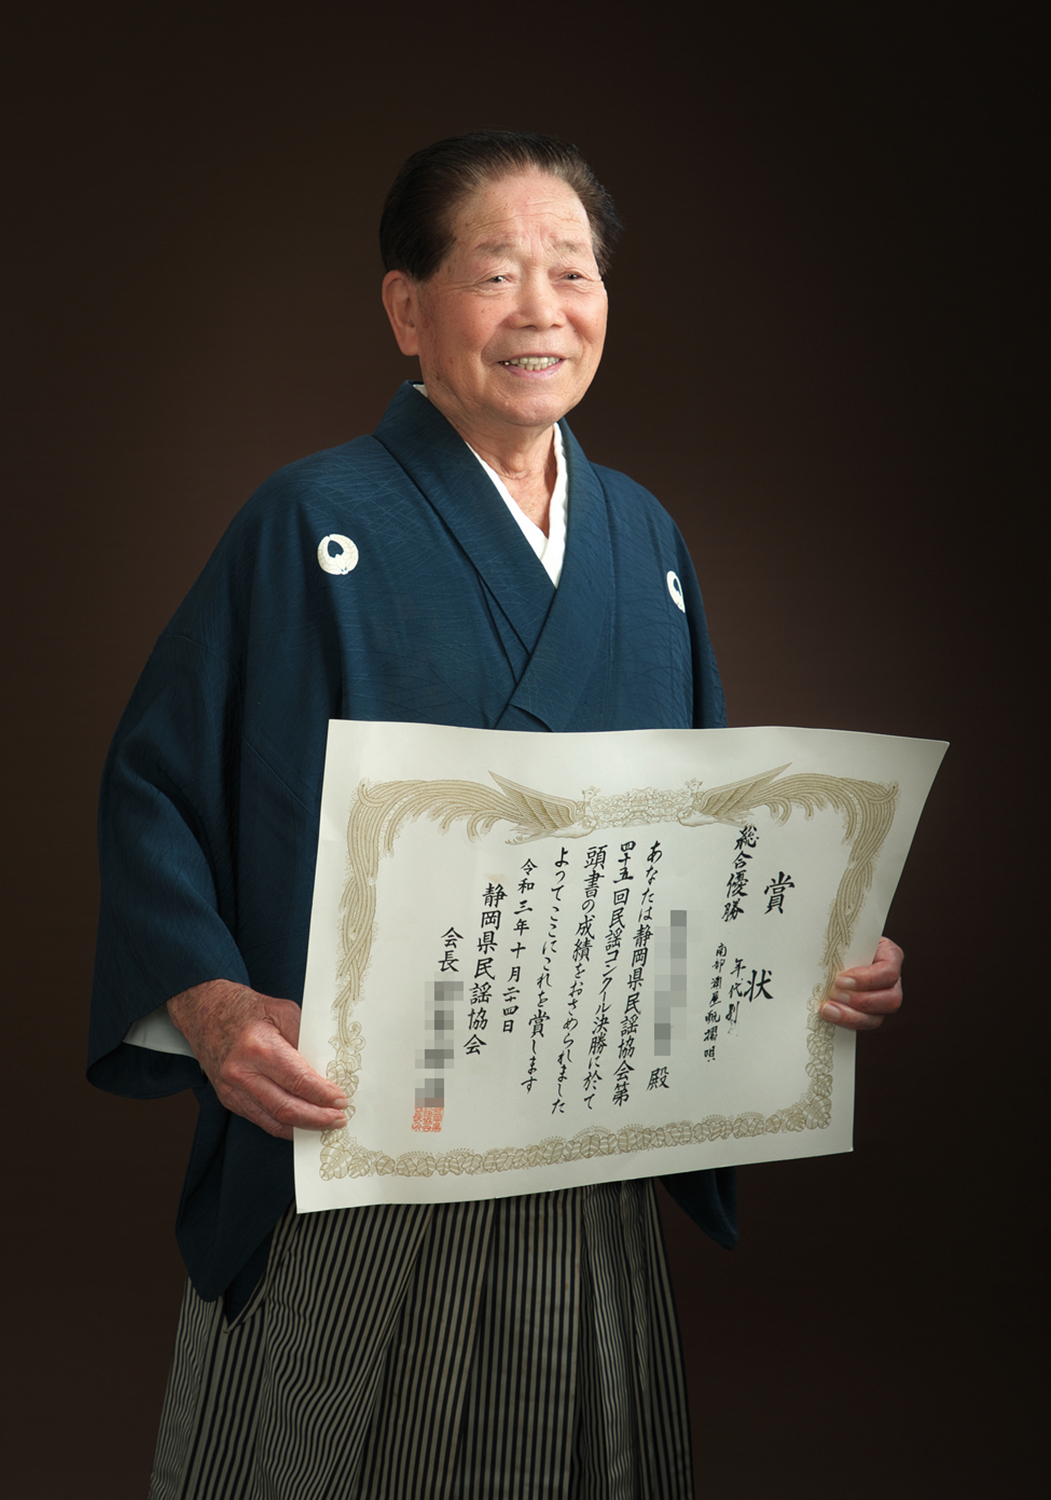 賞状
総合優勝
年代別
南部俵積唄
殿
あなたは静岡県民謡協会第
四十五回民謡コンクール決勝に於て
頭書の成績をおさめられました
よってここにこれを賞します
令和三年十月二十四日
静岡県民謡協会
会長